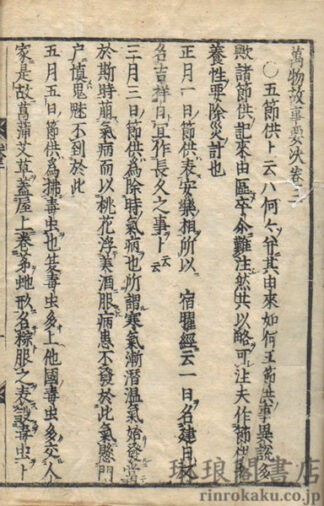 萬物故事要決卷三
○五節供ト云ハ何々弁其由来如何五節供事異説多
歟諸節供記来由區卒ニ今難注然共以略可注夫作節供
養性要除災計也
正月一日節供表安樂相所以 宿曜經云一日名建日杯
名吉祥日宜作長久之事ト云云
三月三日節供為除時氣病也所謂寒氣漸潜温氣始發當
於斯時萠氣病而以桃花浮美酒服病患不發於此氣愍門
户慎鬼魅不到於此
五月五日節供為拂毒虫也其毒虫多上他國毒虫多交人
家是故菖蒲艾草蓋屋上巻茅虵形名粽服之表
毒虫ト
琳琅閣書店
rinrokaku.co.jp